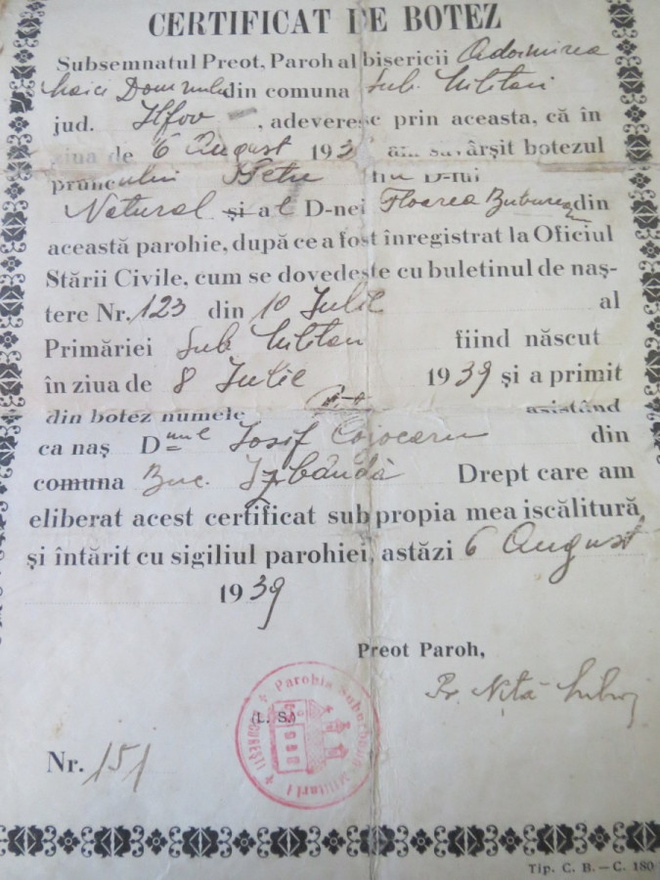 CERTIFICAT DE BOTEZ
Subsemnatul Preot, Paroh al bisericii Adormirea
Maicii Domnului din comuna Sub. Militari
jud. Ilfov, adeveresc prin aceasta, că în
ziua de 6 August 193 am săvârșit botezul
pruncului Petre fiu D-lui
Natural și al D-nei Floarea din
această parohie, după ce a fost înregistrat la Oficiul
Stării Civile, cum se dovedește cu buletinul de naș-
tere Nr. 123 din 10 Iulie al
Primăriei Sub. Militari fiind născut
în ziua de 8 Iulie 1939 și a primit
din botez numele asistând
ca naș Dnul Iosif Cojocaru din
comuna Buc. Izbândă Drept care am
eliberat acest certificat sub propia mea iscălitură
și întărit cu sigiliul parohiei, astăzi 6 August
1939
Preot Paroh,
Pr. Niță
(L. S.)
Parohia Suburbana Militari
București
Nr. 151
Tip. C. B. — C. 180